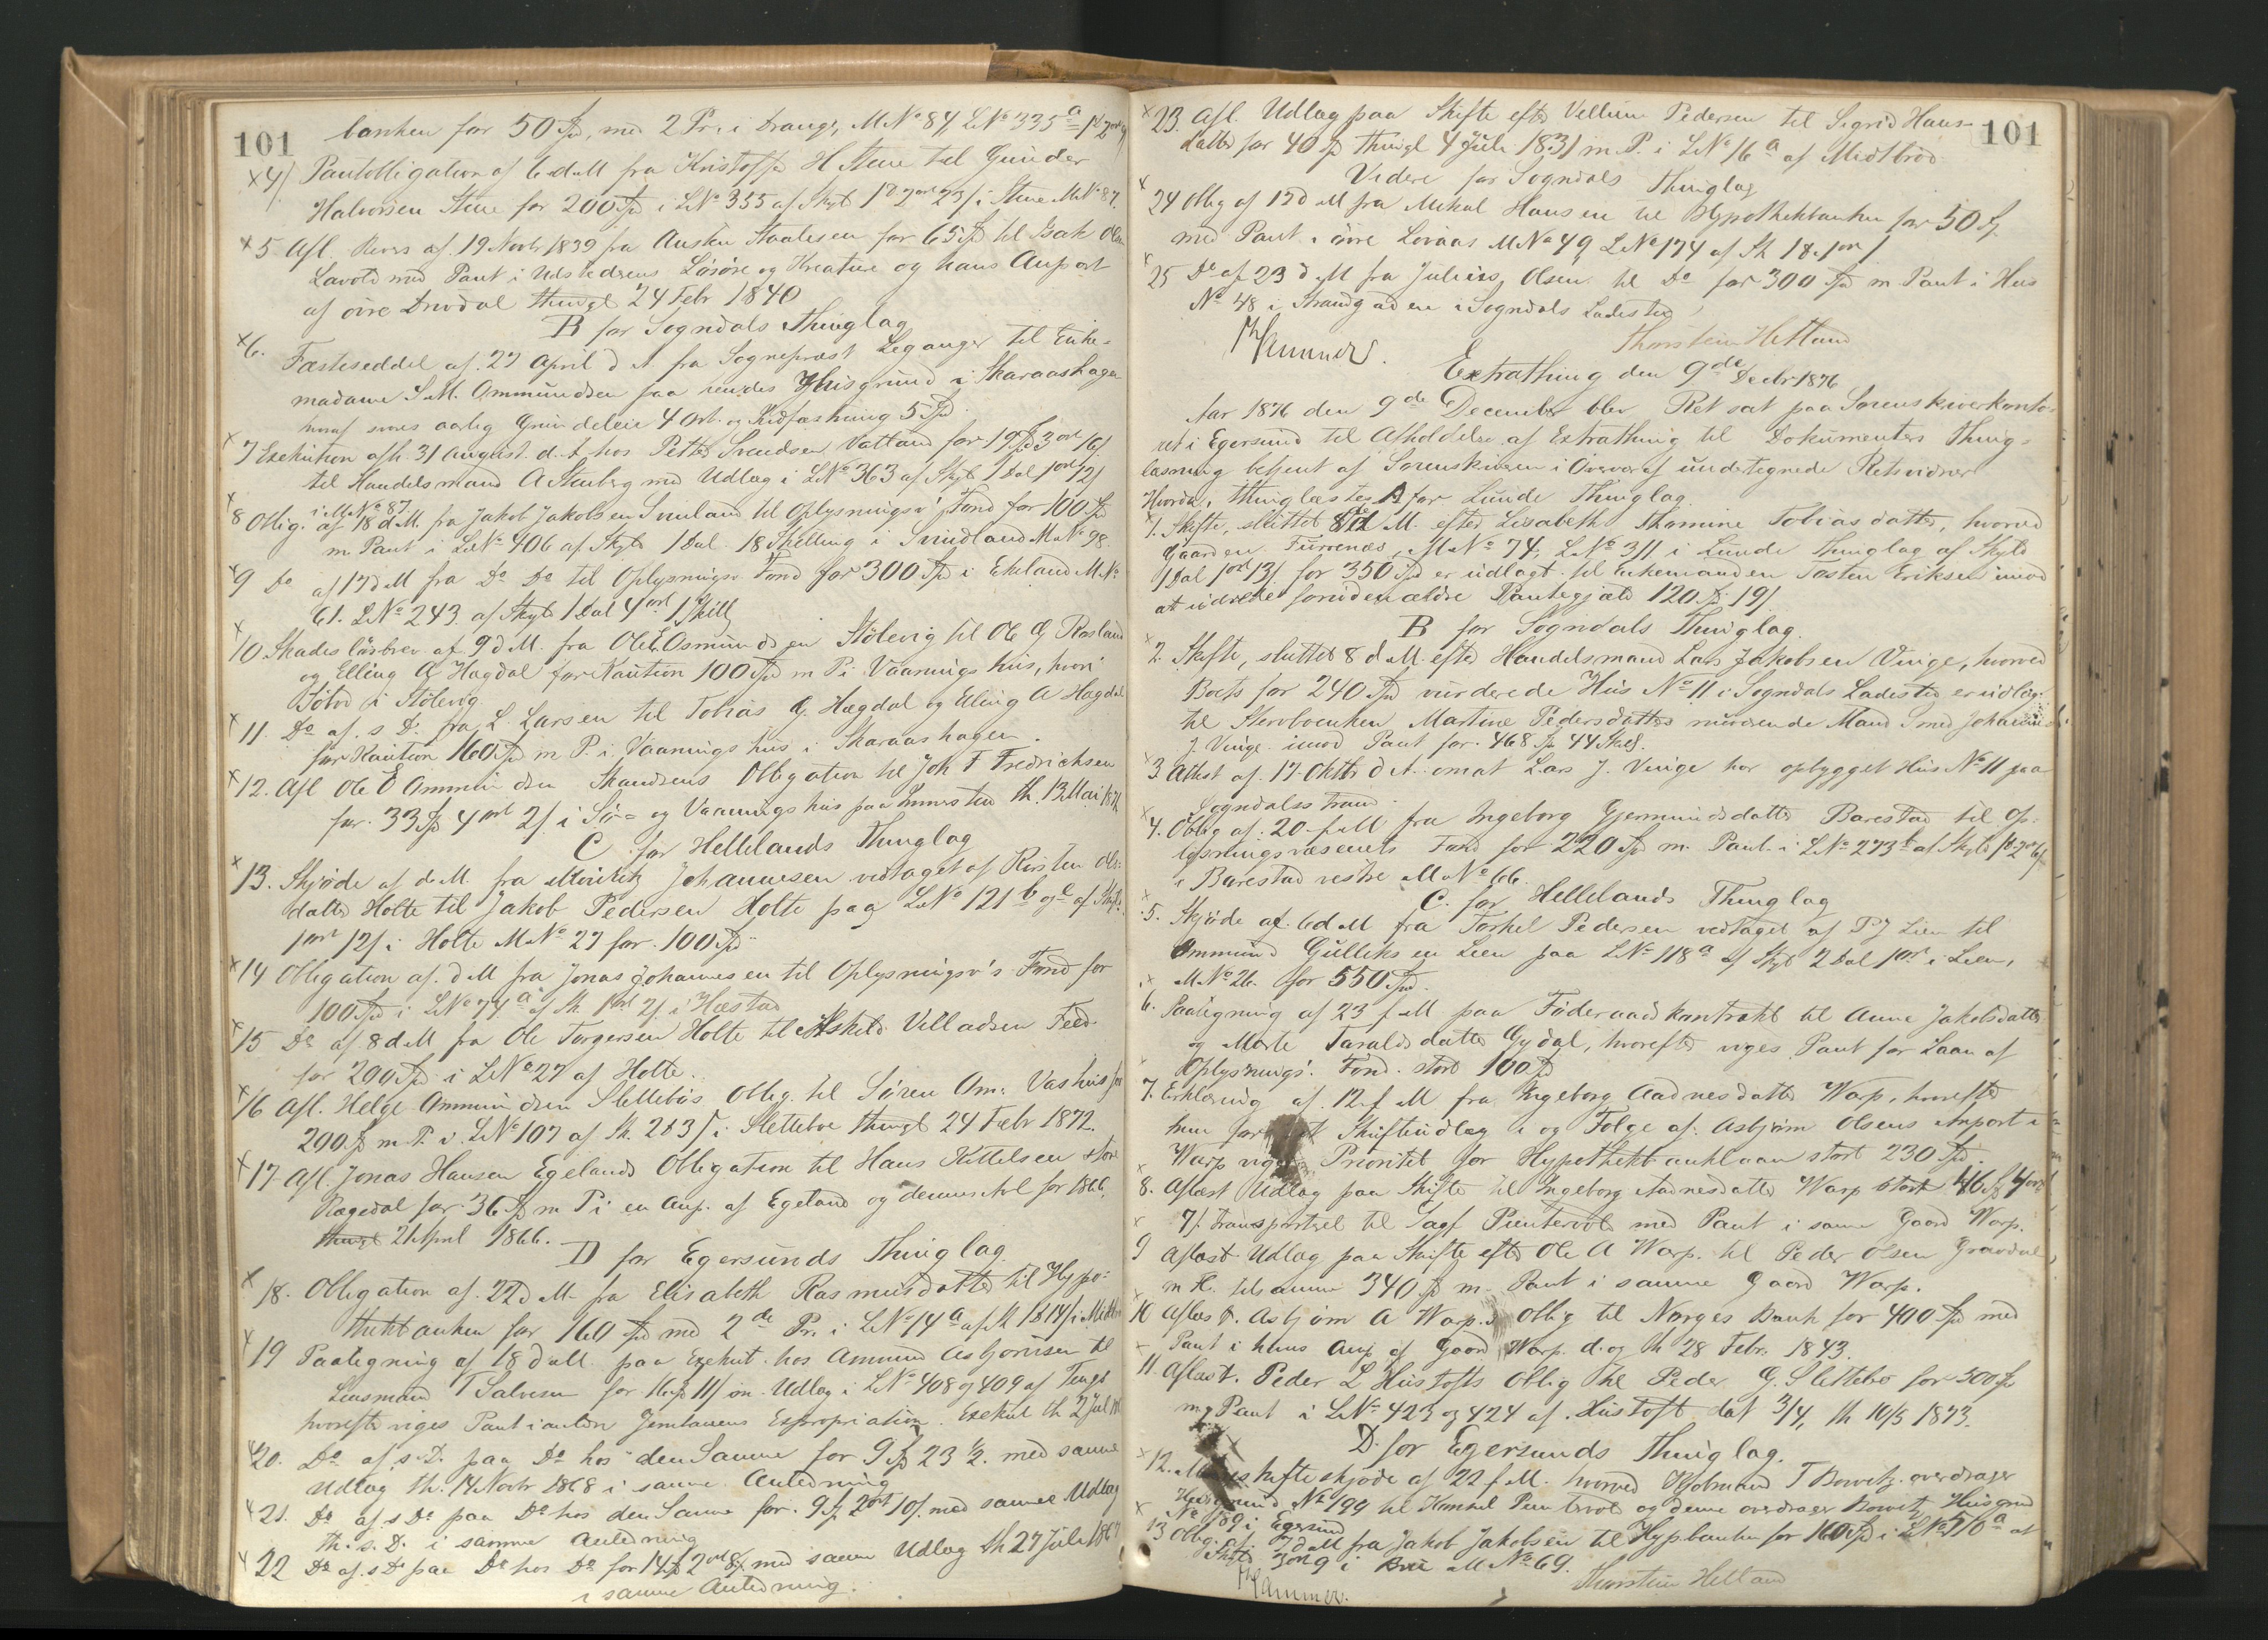 101
banken for 50 Spd, med 2 Pr. i Drangs, MNo 84, LNo 335a
x4/ Pantobligation af 6 d M fra Kristoffer H Stene til Gunder
Halvorsen Stene for 200 Spd i LNo 335 af Skyld 1d 2ort 23/ i Stene MNo 84.
x5 Afl. Revers af 19 Novbr 1839 fra Austen Staalesen for 65 Spd til Isak Olsen
Lavold med Pant i Udstederens Løsøre og Kreature og hans Anpart
af øvre Drivdal thingl 24 Febr 1840
B for Sogndals Thinglag
x6. Fæsteseddel af 27 April d A fra Sognepræst Leganger til Enke-
madame S. M. Ommundsen paa hendes Husgrund i Skaraashagen
hvoraf svares aarlig Grundeleie 4 Ort og Stedfæstning 5 Spd.
x7 Exekution afh. 31 August d. A hos Petter Svendsen Vatland for 19 Spd 3 ort 16/
til Handelsmand A Stenberg med Udlæg i LNo 363 af Skyld 1 Dal 1 ort 12/
i MNo 87.
x8 Oblig. af 18 d M. fra Jakob Jakobsen Svinland til Oplysningsv. Fond for 100 Spd
m Pant i LNo 406 af Skyld 1 Dal 18 Skilling i Svindland MNo 98.
x9 Do af 17 d M fra Do Do til Oplysningsv. Fond for 300 Spd i Ekeland MNo
61. LNo 243 af Skyld 1 Dal 4 ort 1 Skill
x10. Skadesløsbrev af 9 d M. fra Ole E Osmundsen Stölevig til Ole G Rosland
og Elling A Hagdal for Kaution 100 Spd m P i Vaaningshus, hvori
Sötvd i Stölevig
x11. Do af s D. fra L. Larsen til Tobias G. Hægdal og Elling A Hagdal
for Kaution 160 Spd m P. i Vaaningshus i Skaraashagen.
x12. Afl Ole O Ommundsen Strandens Obligation til Joh F Fredrichsen
for 33 Spd 4 ort 2/ i Sø- og Vaaningshus paa th. 13 Mai
C for Hellelands Thinglag
x13. Skjøde af d M. fra Johannesen vedtaget af Kirsten Ols-
datter Holte til Jakob Pedersen Holte paa LNo 121 b og c af Skyld
1 ort 12/ i Holte MNo 27 for 100 Spd
x14 Obligation af d M fra Jonas Johannesen til Oplysningsv's Fond for
100 Spd i LNo 74a af Sk. 1 ort 2/ i Hæstad
x15 Do af 8 d M fra Ole Torgersen Holte til Villadsen Feed
for 200 Spd i LNo 27 af Holte.
x16 Afl. Helge Ommundsen Slettebös Oblig. til Sören Om. Vashus for
200 Spd m P. i LNo 107 af Sk. 2 d 3/ i Slettebø thingl 24 Febr 1872.
x17 Afl. Jonas Hansen Egelands Obligation til Hans Kittelsen store
Rægedal for 36 Spd m P i en Anp. af Egeland og dennes Avl for 1866,
thingl 21 April 1866.
D for Egersunds Thinglag
x18. Obligation af 22 d M fra Elisabeth Rasmusdatter til Hypo-
thekbanken for 160 Spd med 2de Pr. i LNo 14a af Sk 1 d 14/ i
x19 Paategning af 18 d M paa Exekut. hos Ommund Asbjørnsen til
Lensmand T Salvesen for 16 Spd 11/ m. Udlæg i LNo 408 og 409 af Tengs
hvorefter viges Pant i anledn Jernbanens Expropriation. Exekut th 2 Juli
x20. Do af s. D. paa Do hos den Samme for 9 Spd 23 1/2. med samme
Udlæg th. 14 Novbr 1868 i samme Anledning
x21. Do af s Do paa Do hos den Samme for 9 Spd 2 ort 10/. med samme Udlæg
th. s. D. i samme Anledning
x22 Do af s D paa Do hos Do for 14 Spd 2 ort 8/ med samme Udlæg th 27 Juli 1867
i samme Anledning.
101
x23. Afl. Udlæg paa Skifte efter Vellum Pedersen til Sigrid Hans-
datter for 40 Spd thingl 4 Juli 1831 m P. i LNo 16a af Midtbrød
Videre for Sogndals Thinglag
x24 Oblig af 17 d M fra Mikal Hansen til Hypothekbanken for 50 Spd
med Pant i øvre Lovaas MNo 49, LNo 174 af Sk 1 d. 1 ort 1
x25 Do af 23 d M fra Julius Olsen til Do for 300 Spd m Pant i Hus
No 48 i Strandgaden i Sogndals Ladested
Hammer. Thorstein Hetland
Extrathing den 9de Decbr 1876
Aar 1876 den 9de December blev Ret sat paa Sorenskriverkonto-
ret i Egersund til Afholdelse af Extrathing til Dokumenters Thing-
læsning betjent af Sorenskriveren i Overvær af undertegnede Retsvidner
Hvorda thinglæstes A for Lunde Thinglag
x1. Skifte, sluttet 8 d M. efter Lisabeth Thomine Tobiasdatter, hvorved
Gaarden Furrenæs, MNo 74, LNo 311 i Lunde Thinglag af Skyld
1 Dal 1 ort 13/ for 350 Spd er udlagt til Enkemanden Tosten Eriksen imod
at udrede foruden ældre Pantegjæld 120 Spd 19/
B for Sogndals Thinglag.
x2. Skifte, sluttet 8 d M. efter Handelsmand Lars Jakobsen Vinge, hvorved
Boets for 240 Spd vurderede Hus No 11 i Sogndals Ladested er udlagt
til Stervboenken Martine Pedersdatters nuværende Mand Smed Johannes
J. Vinge imod Pant for 468 Spd 44 Skill.
x3. Attest af 17 Oktbr d A. om at Lars J. Vinge har opbygget Hus No 11 paa
Sogndalsstrand.
x4. Oblig af 20 f M fra Ingeborg Gjermundsdatter Barestad til Op-
lysningsvæsenets Fond for 220 Spd m. Pant i LNo 273b af Skyld
i Barestad vestre MNo 66.
C. for Hellelands Thinglag
x5. Skjøde af 6 d M fra Torkel Pedersen vedtaget af P J Lien til
Ommund Gulliksen Leen paa LNo 118a af Skyld 2 Dal 1 ort i Leen,
MNo 26. for 550 Spd.
x6. Paategning af 23 f M paa Föderaadskontrakt til Anne Jakobsdatter
og Marte Taraldsdatter Gydal, hvorefter viges Pant for Laan af
Oplysnings. Fond. stort 100 Spd
x7. Erklæring af 12 f M fra Ingeborg Aadnesdatter Warp, hvorefter
hun for Skifteudlæg i og Følge af Asbjørn Olsens Anpart i
Warp viger Prioritet for Hypothekbanklaan stort 230 Spd.
x8. Aflæst Udlæg paa Skifte til Ingeborg Aadnesdatter Warp stort 46 Spd 4 ort
7/ transporteret til Sagf. Puntervold med Pant i samme Gaard Warp.
x9 Aflæst Udlæg paa Skifte efter Ole A Warp til Peder Olsen Gravdal
m fl. tilsamme 340 Spd m Pant i samme Gaard Warp.
x10 Aflæst. Asbjørn A Warps Oblig til Norges Bank for 400 Spd med
Pant i hans Anp. af Gaard Warp d. og th 28 Febr. 1843.
x11. Aflæst. Peder L Hustofts Oblig til Peder G. Slettebø for 500 Spd
m Pant i LNo 423 og 424 af Hustoft dat 3/4, th 10/5 1873.
D. for Egersunds Thinglag.
x12. af 22 f M. hvorved Kjøbmand T Bowitz overdrager
Husgrund No 199 til Puntervold og denne overdrager Bowitz Husgrund
No 189 i Egersund
x13 Oblig. af 7 d M fra Jakob Jakobsen til Hyp.banken for 160 Spd i LNo 510a af
Skyld 3 ort 9 i Bru MNo 69.
Hammer. Thorstein Hetland